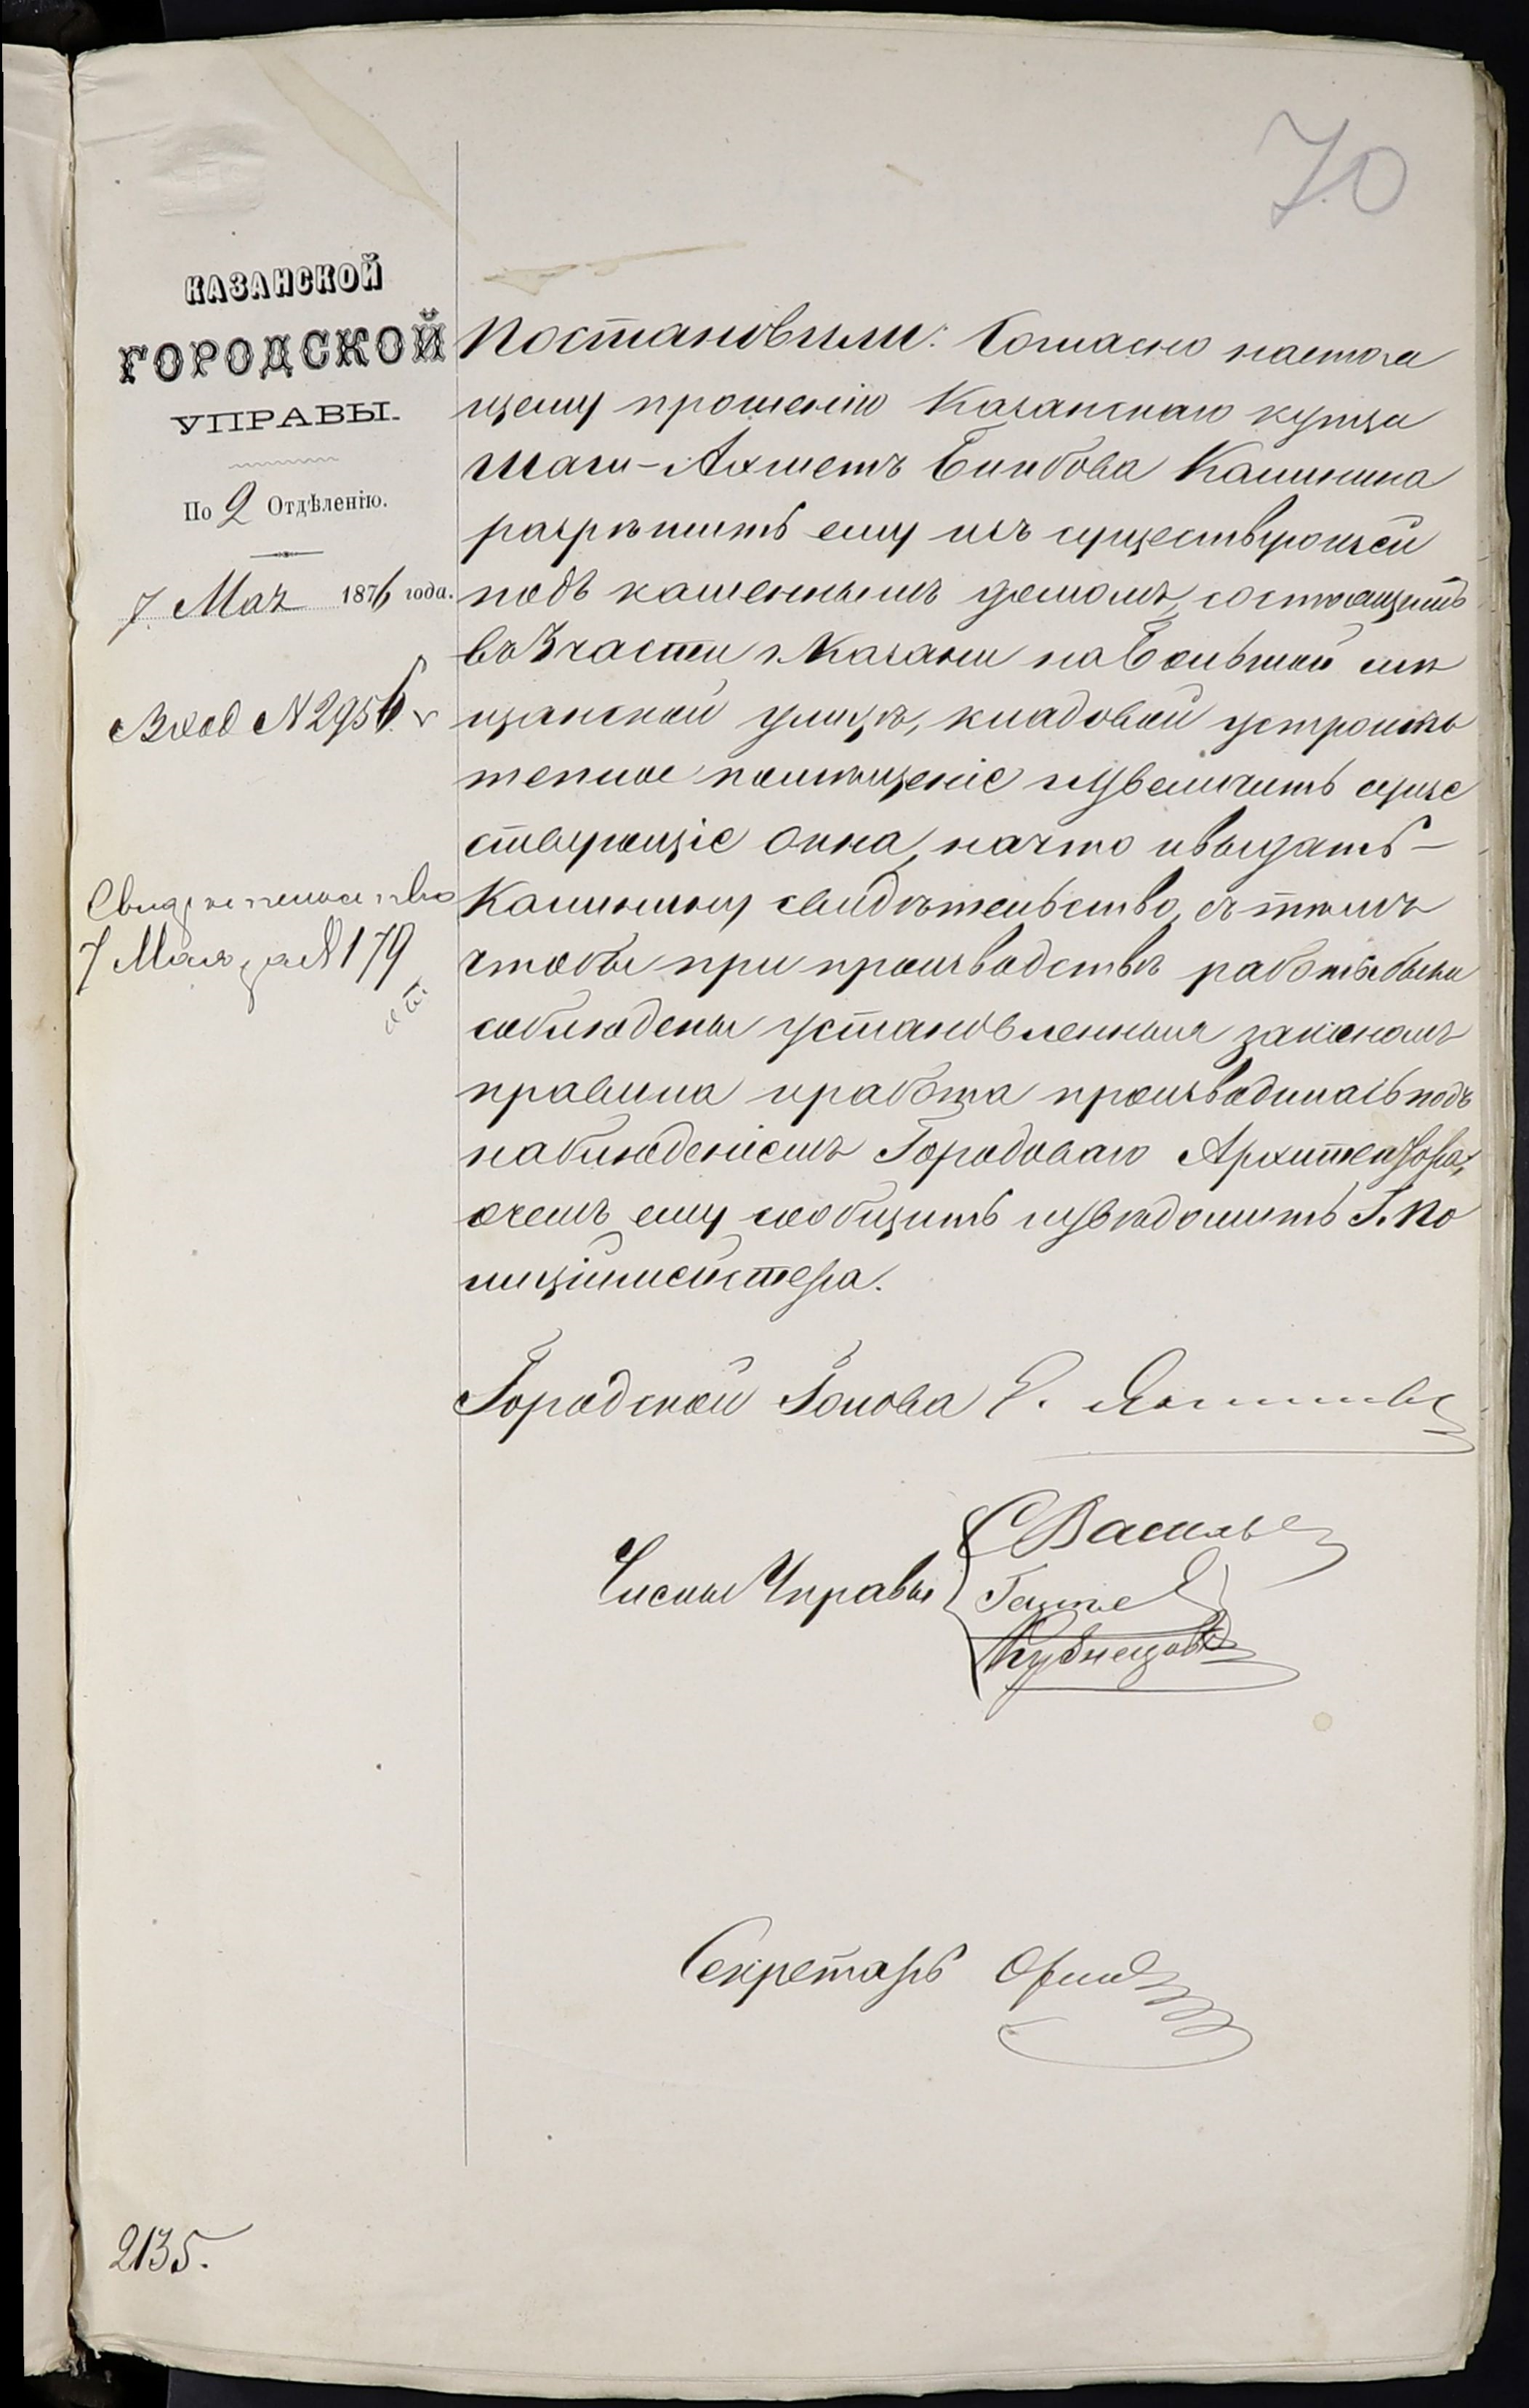 70
КАЗАНСКОЙ
ГОРОДСКОЙ
УПРАВЫ.
По 2 Отдѣленію.
7. Мая 1876 года.
Вход №2956
Свидѣтельство
7 Мая за №179
Постановили: Согласно настоя
щему прошенію Казанскаго купца
Шаги-Ахметъ Кашинина
разрѣшить ему изъ существующей
подъ каменнымъ домомъ, состоящимъ
въ 3 части г. Казани на Большой мѣ
щанской улицѣ, кладовой устроить
теплое помѣщеніе и увеличить суще
ствующіе окна, на что и выдать
свидѣтельство, съ тѣмъ
чтобы при производствѣ работъ были
соблюдены установленныя закономъ
правила и работа производилась подъ
наблюденіемъ Городоваго Архитектора,
о чемъ ему сообщить и увѣдомить Г. По
лиціймейстера.
Городской Голова Е.
Члены Управы
С Васильев
Кузнецовъ
Секретарь
2135.